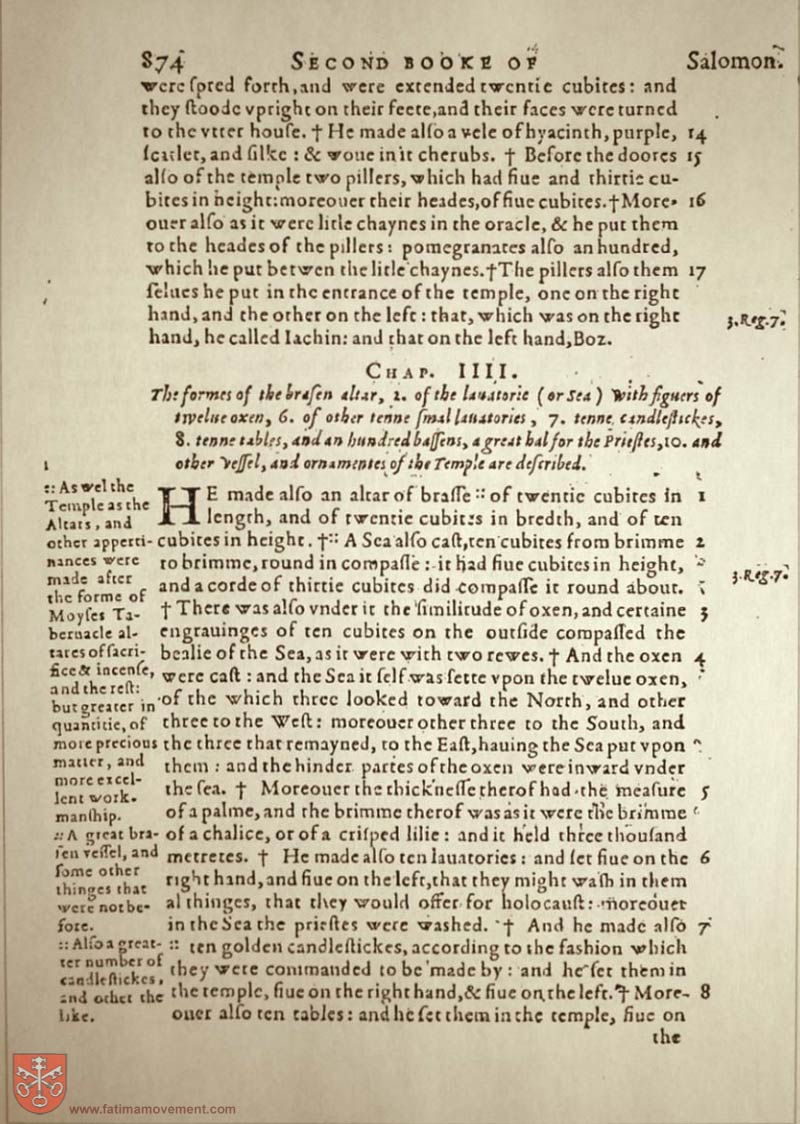 874 SECOND BOOKE OF Salomon.
were ſpred forth,and were extended twentie cubites: and
they ſtoode vpright on their feete,and their faces were turned
to the vtter houſe. † He made alſo a vele of hyacinth, purple, 14
ſcarlet, and ſilke : & woue in it cherubs. † Before the doores 15
alſo of the temple two pillers, which had fiue and thirtie cu-
bites in height:moreouer their heades,of fiue cubites.†More- 16
ouer alſo as it were litle chaynes in the oracle, & he put them
to the heades of the pillers: pomegranates alſo an hundred,
which he put betwen the litle chaynes.†The pillers alſo them 17
ſelues he put in the entrance of the temple, one on the right
hand, and the other on the left: that, which was on the right 3.Reg.7.
hand, he called Iachin: and that on the left hand,Boz.
CHAP. IIII.
The formes of the braſen altar, 2. of the lauatorie (or Sea) with figuers of
twelue oxen, 6. of other tenne ſmal lauatories, 7. tenne candleſtickes,
8. tenne tables, and an hundred baſſens, a great hal for the Prieſtes,10. and
other veſſel, and ornamentes of the Temple are deſcribed.
HE made alſo an altar of braſſe :: of twentie cubites in 1
length, and of twentie cubites in bredth, and of ten
cubites in height. †:: A Sea alſo caſt,ten cubites from brimme 2
to brimme, round in compaſſe : it had fiue cubites in height,
and a corde of thirtie cubites did compaſſe it round about. 3.Reg.7.
† There was alſo vnder it the ſimilitude of oxen, and certaine 3
engrauinges of ten cubites on the outſide compaſſed the
bealie of the Sea, as it were with two rewes. † And the oxen 4
were caſt : and the Sea it ſelf was ſette vpon the twelue oxen,
of the which three looked toward the North, and other
three to the Weſt: moreouer other three to the South, and
the three that remayned, to the Eaſt,hauing the Sea put vpon
them : and the hinder partes of the oxen were inward vnder
the ſea. † Moreouer the thickneſſe therof had the meaſure 5
of a palme, and the brimme therof was as it were the brimme
of a chalice, or of a criſped lilie : and it held three thouſand
metretes. † He made alſo ten lauatories : and ſet fiue on the 6
right hand, and fiue on the left,that they might waſh in them
al thinges, that they would offer for holocauſt: moreouer
in the Sea the prieſtes were waſhed. † And he made alſo 7
:: ten golden candleſtickes, according to the faſhion which
they were commanded to be made by : and he ſet them in
the temple, fiue on the right hand,& fiue on the left. † More- 8
ouer alſo ten tables : and he ſet them in the temple, fiue on
the
:: As wel the
Temple as the
Altars, and
other apperti-
nances were
made after
the forme of
Moyſes Ta-
bernacle al-
tares of ſacri-
fice & incenſe,
and the reſt:
but greater in
quantitie, of
more precious
matter, and
more excel-
lent work-
manſhip.
:: A great bra-
ſen veſſel, and
ſome other
thinges that
were not be-
fore.
:: Alſo a great-
ter number of
candleſtickes,
and other the
like.
www.fatimamovement.com